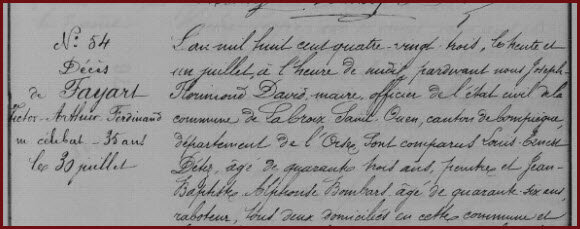 N° 54
Décès
de Fayart
Victor-Arthur Ferdinand
célibat - 35 ans
le 30 juillet
L'an mil huit cent quatre-vingt-trois, le trente et
un juillet, à l'heure de midi, pardevant nous Joseph-
Florimond David, maire, officier de l'état civil de la
commune de La Croix Saint Ouen, canton de Compiègne,
département de l'Oise, sont comparus Louis-Ernest
âgé de quarante trois ans, peintre et Jean-
Baptiste Alphonse Bombart, âgé de quarante-six ans,
raboteur, tous deux domiciliés en cette commune et